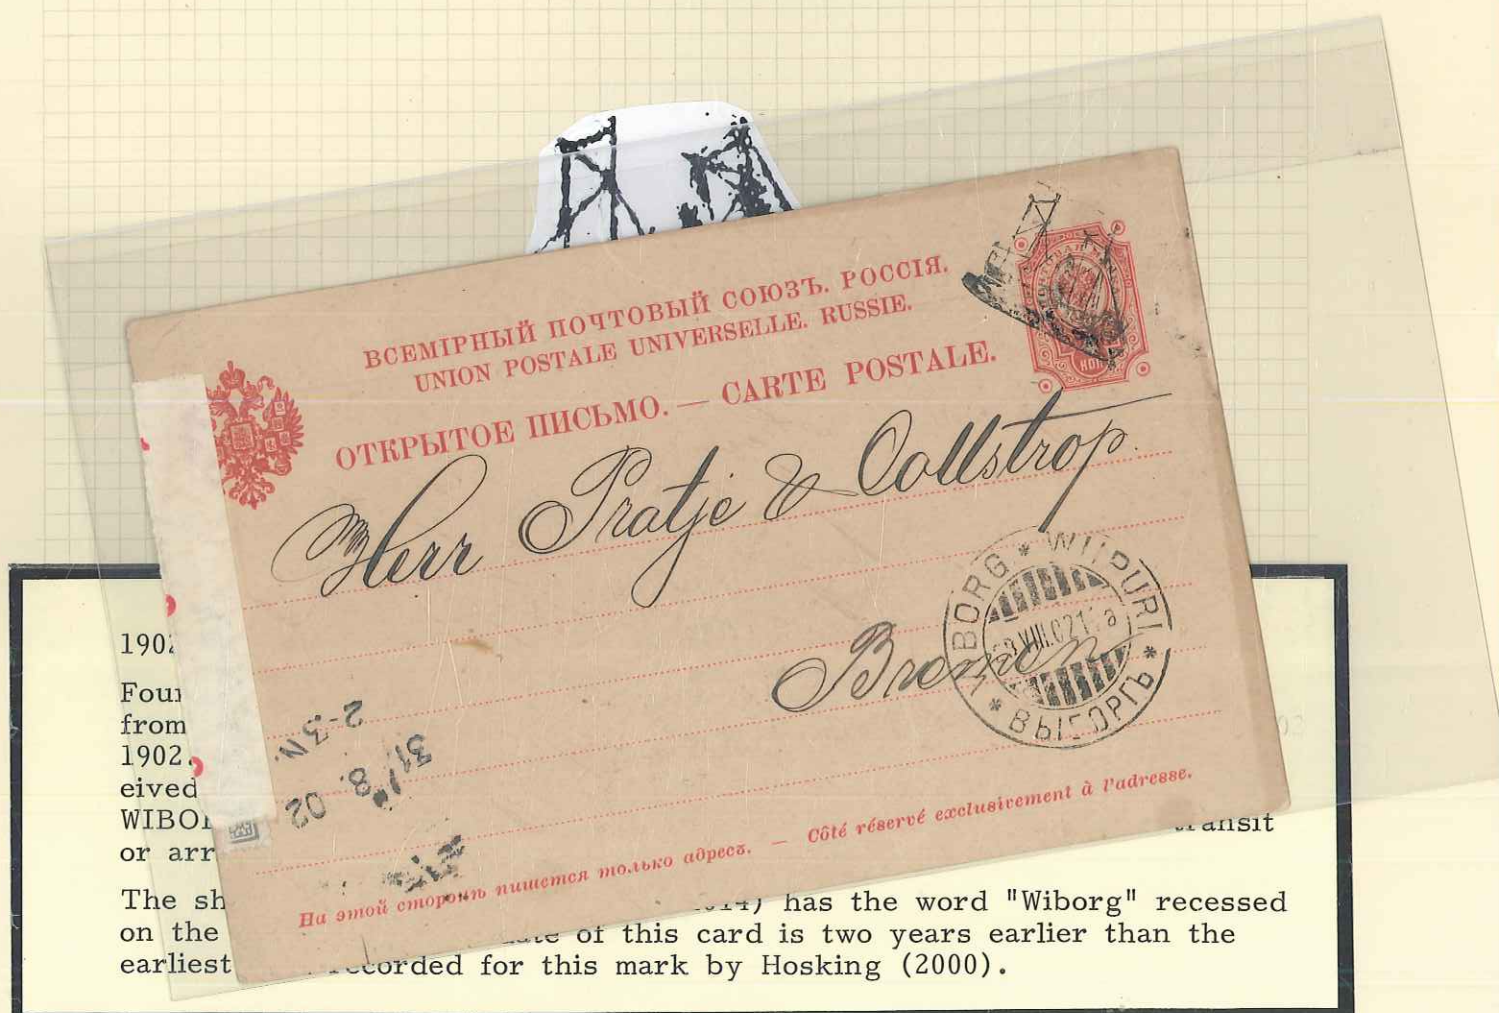 ВСЕМІРНЫЙ ПОЧТОВЫЙ СОЮЗЪ. РОССІЯ.
UNION POSTALE UNIVERSELLE. RUSSIE.
ОТКРЫТОЕ ПИСЬМО. — CARTE POSTALE.
КОП
Herr Pratje & Collstrop.
Bremen
WIBORG * WIIPURI * ВЫБОРГЪ *
VIII.02
2-3 N.
31/8. 02
На этой сторонѣ пишется только адресъ. — Côté réservé exclusivement à l'adresse.
1902
from
1902.
eived
transit
or arr
The sh 2014) has the word "Wiborg" recessed
on the date of this card is two years earlier than the
earliest recorded for this mark by Hosking (2000).